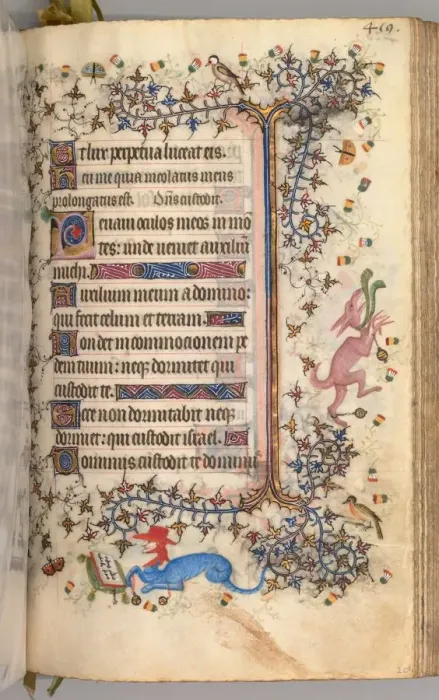 469.
Et lux perpetua luceat eis.
Heu me quia incolatus meus
prolongatus est. Dñs custodit.
Leuaui oculos meos in mō
tes: unde ueniet auxiliū
michi.
Auxilium meum a domino:
qui fecit celum et terram.
Non det in commocionem pe
dem tuum: neq; dormitet qui
custodit te.
Ecce non dormitabit neq;
dormiet: qui custodit israel.
Dominus custodit te dominus